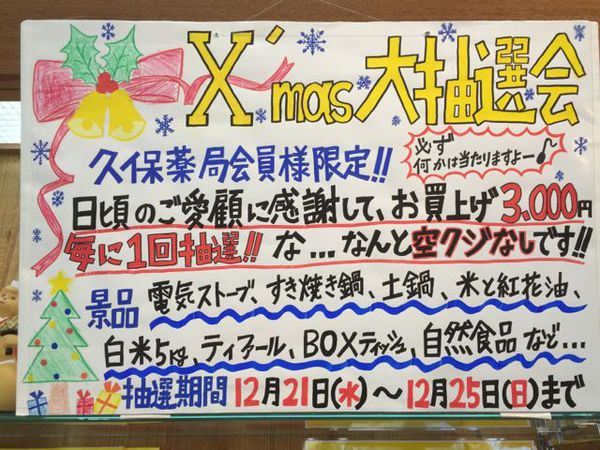 X'mas大抽選会
久保薬局会員様限定!!
必ず
何かは当たりますよー♪
日頃のご愛顧に感謝して、お買上げ3.000円
毎に1回抽選!! な…なんと空クジなしです!!
景品 電気ストーブ、すき焼き鍋、土鍋、米と紅花油、
白米5kg、ティファール、BOXティッシュ、自然食品など…
抽選期間 12月21日(水)〜12月25日(日)まで